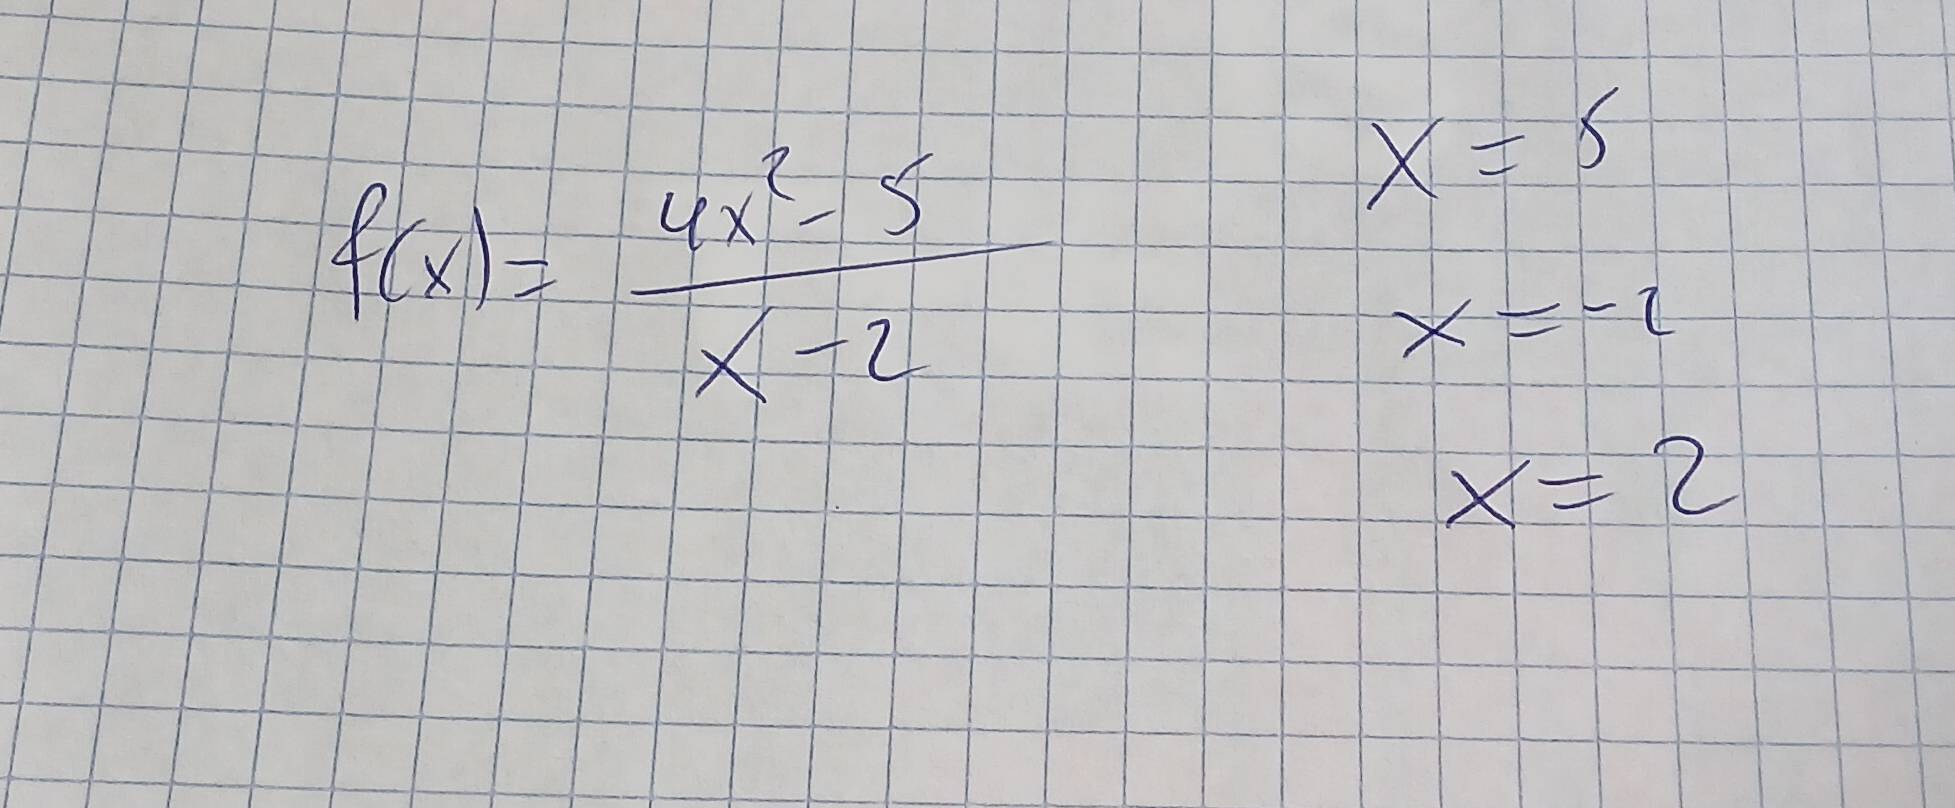 f(x) = (4x² - 5)/(x - 2)
x = 5
x = -2
x = 2